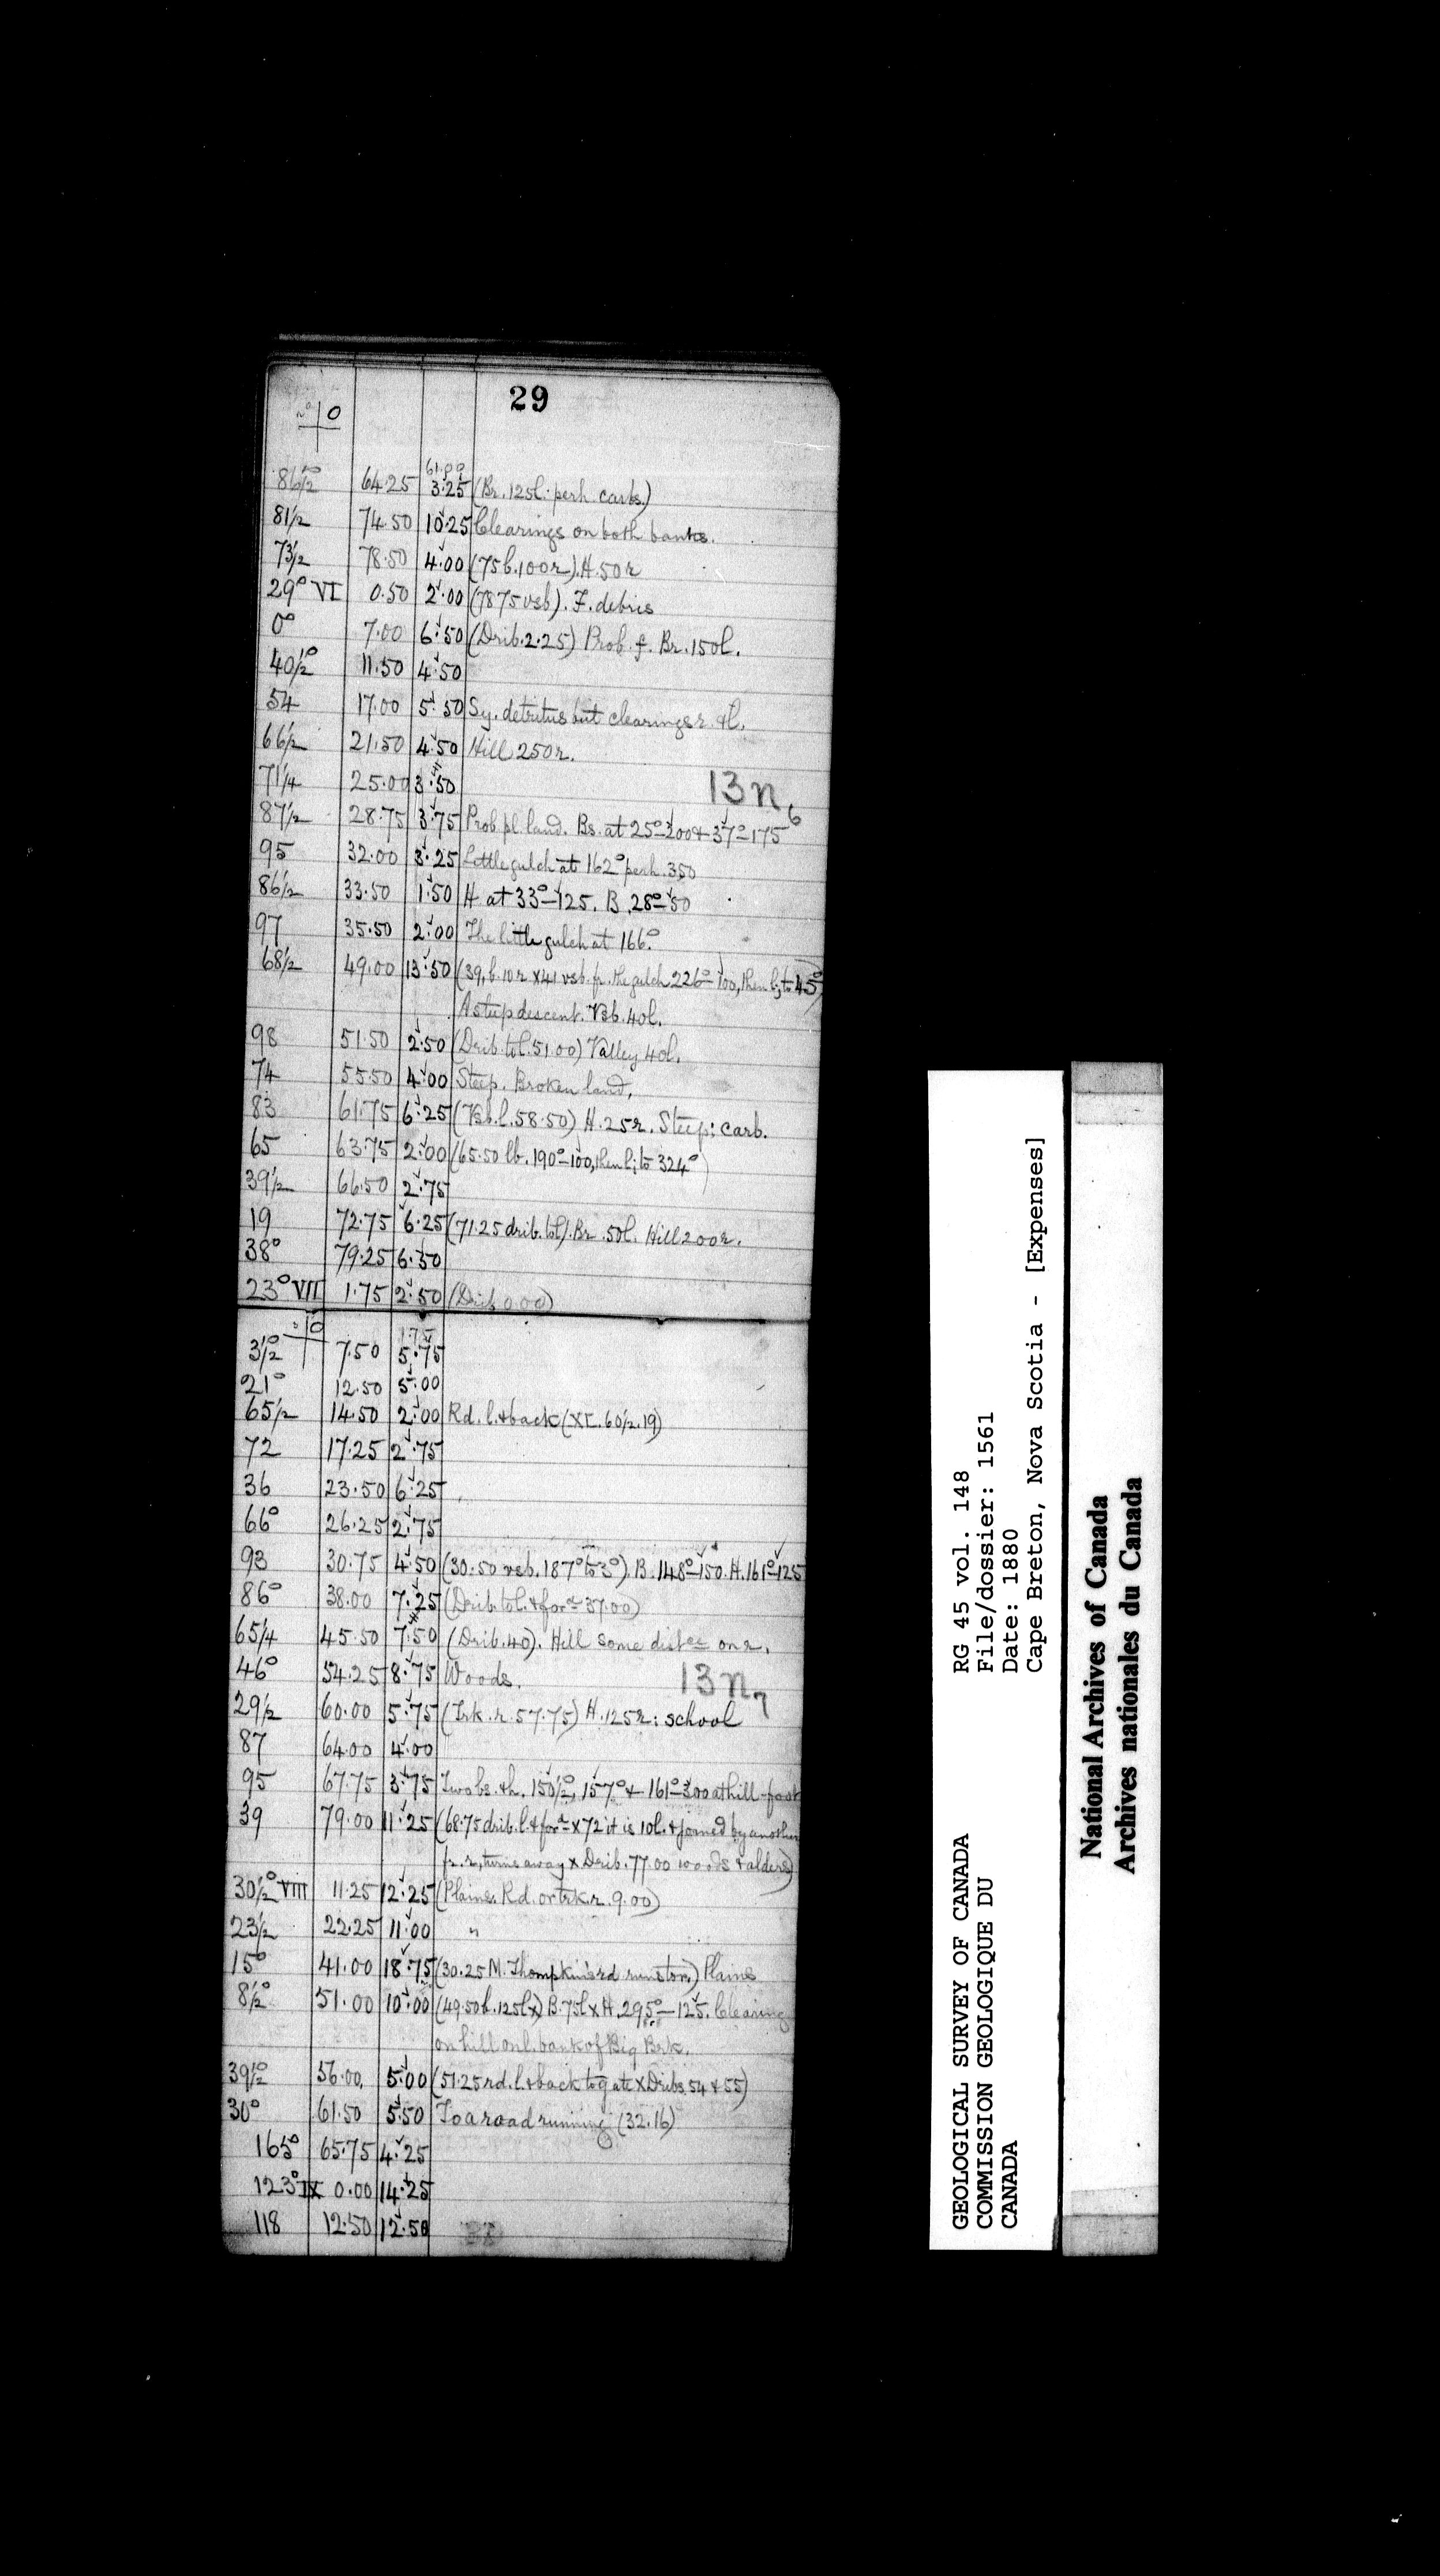 29
0
61.00
86½° 64.25 3.25 (Br. 125l. perh carbs.)
81½ 74.50 10.25 Clearings on both banks.
73½ 78.50 4.00 (75 b. 100r). H. 50r
29° VI 0.50 2.00 (78 75 vsb). F. debris
0° 7.00 6.50 (Drib. 2.25) Prob. f. Br. 150l.
40½° 11.50 4.50
54 17.00 5.50 Sy. detritus but clearings r. & l.
66½ 21.50 4.50 Hill 250r.
71¼ 25.00 3.50
13n6
87½ 28.75 3.75 Prob pl. land. Bs. at 25°-200 & 37°-175
95 32.00 3.25 Little gulch at 162° perh. 350
86½ 33.50 1.50 H at 33°-125. B. 28°-50
97 35.50 2.00 The little gulch at 166°
68½ 49.00 13.50 (39, b. 10r x 41 vsb. fr. the gulch 226°-100, then l; to 45°)
A steep descent. Vsb. 40l.
98 51.50 2.50 (Drib. to l. 51.00) Valley 40l.
74 55.50 4.00 Steep. Broken land,
83 61.75 6.25 (Vsb. l. 58.50) H. 25r. Steep: carb.
65 63.75 2.00 (65.50 lb. 190°-100, then l; to 324°)
39½ 66.50 2.75
19 72.75 6.25 (71.25 drib. to l). Br. 50l. Hill 200r.
38° 79.25 6.50
23° VII 1.75 2.50 (Drib 0.00)
0
1.75
3½° 7.50 5.75
21° 12.50 5.00
65½ 14.50 2.00 Rd. l. & back (XI. 60½. 19)
72 17.25 2.75
36 23.50 6.25
66° 26.25 2.75
93 30.75 4.50 (30.50 vsb. 187° to 3°). B. 148°-150. H. 161°-125
86° 38.00 7.25 (Drib. to l. & ford 37.00)
65¼ 45.50 7.50 (Drib. 40). Hill some distce on r.
46° 54.25 8.75 Woods.
13n7
29½ 60.00 5.75 (Trk. r. 57.75) H. 125r: school
87 64.00 4.00
95 67.75 3.75 Two bs. & h. 150½°, 157° & 161°-300 at hill-foot
39 79.00 11.25 (68.75 drib. l. & ford x 72 it is 10l. & joined by another
fr. r., turns away x Drib. 77.00 woods & alders)
30½° VIII 11.25 12.25 (Plains. Rd. or trk. r. 9.00)
23½ 22.25 11.00 "
15° 41.00 18.75 (30.25 M. Thompkins rd runs to r.) Plains
8½° 51.00 10.00 (49.50 b. 125l x) B. 75l x H. 295°-125. Clearing
on hill on l. bank of Big Brk.
39½° 56.00 5.00 (51.25 rd. l. & back to gate x Dribs. 54 & 55)
30° 61.50 5.50 To a road running (32.16)
165° 65.75 4.25
123° IX 0.00 14.25
118 12.50 12.50
GEOLOGICAL SURVEY OF CANADA
COMMISSION GEOLOGIQUE DU
CANADA
RG 45 vol. 148
File/dossier: 1561
Date: 1880
Cape Breton, Nova Scotia - [Expenses]
National Archives of Canada
Archives nationales du Canada